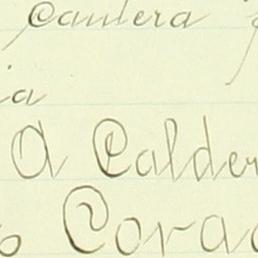 Cantera
ia
A Calder
Corac